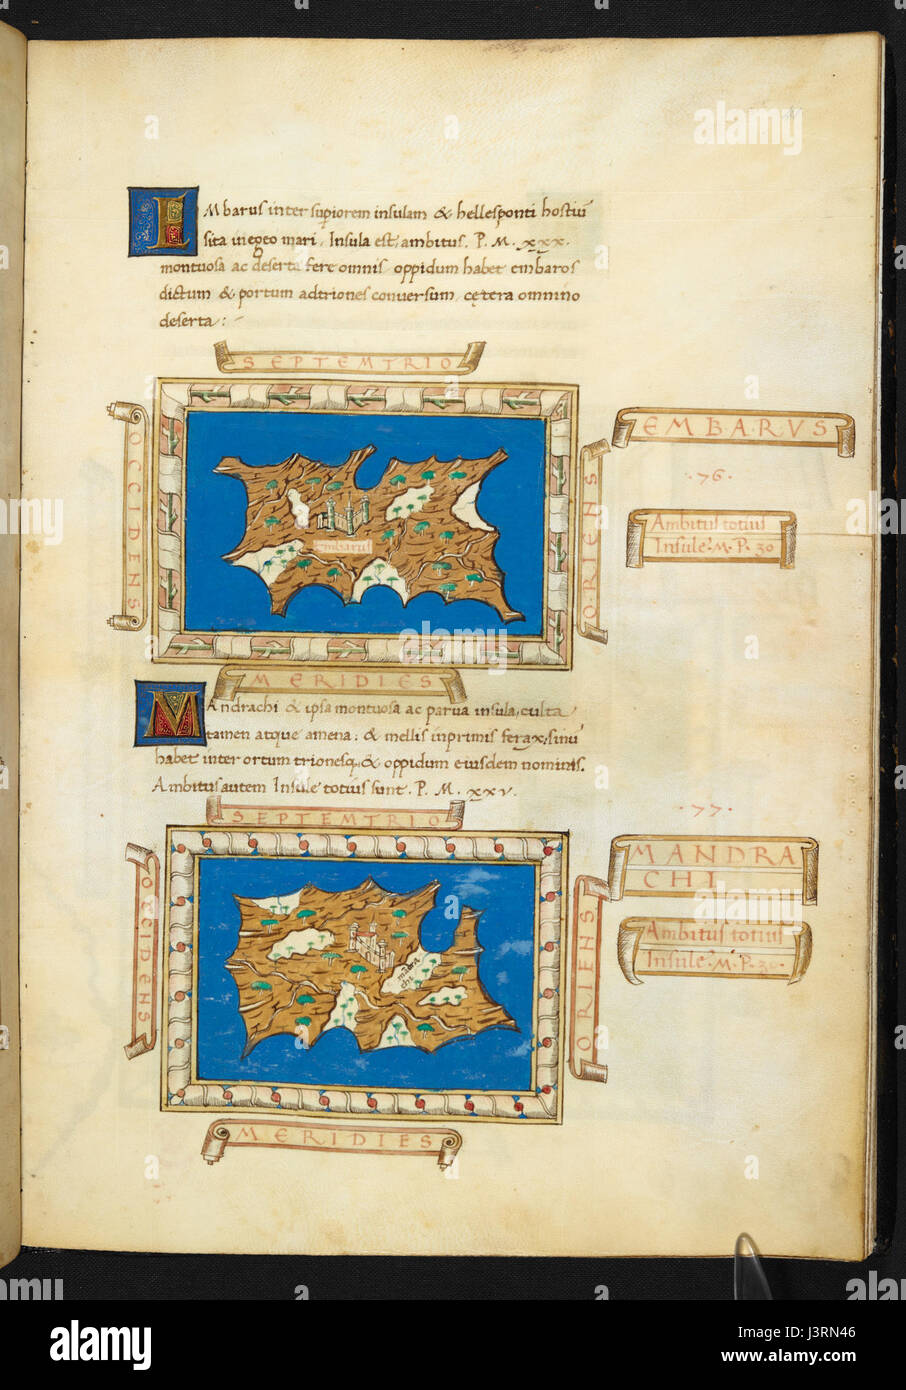 IMbarus inter supiorem insulam & hellesponti hostiũ
sita in egeo mari. Insula est ambitus. P. M. xxx.
montuosa ac deserta fere omnis oppidum habet embaros
dictum & portum adtriones conversum cętera omnino
deserta:
SEPTEMTRIO
OCCIDENS
ORIENS
embarus
EMBARVS
·76·
Ambitus totius
Insule·M·P·30
MERIDIES
MAndrachi & ipsa montuosa ac parva insula, culta
tamen atque amena: & mellis inprimis ferax, sinũ
habet inter ortum trionesq, & oppidum eiusdem nominis.
Ambitus autem Insule totius sunt. P. M. xxv.
SEPTEMTRIO
OCCIDENS
ORIENS
·77·
MANDRA
CHI
Ambitus totius
Insule·M·P·
MERIDIES
alamy
Image ID: J3RN46
www.alamy.com